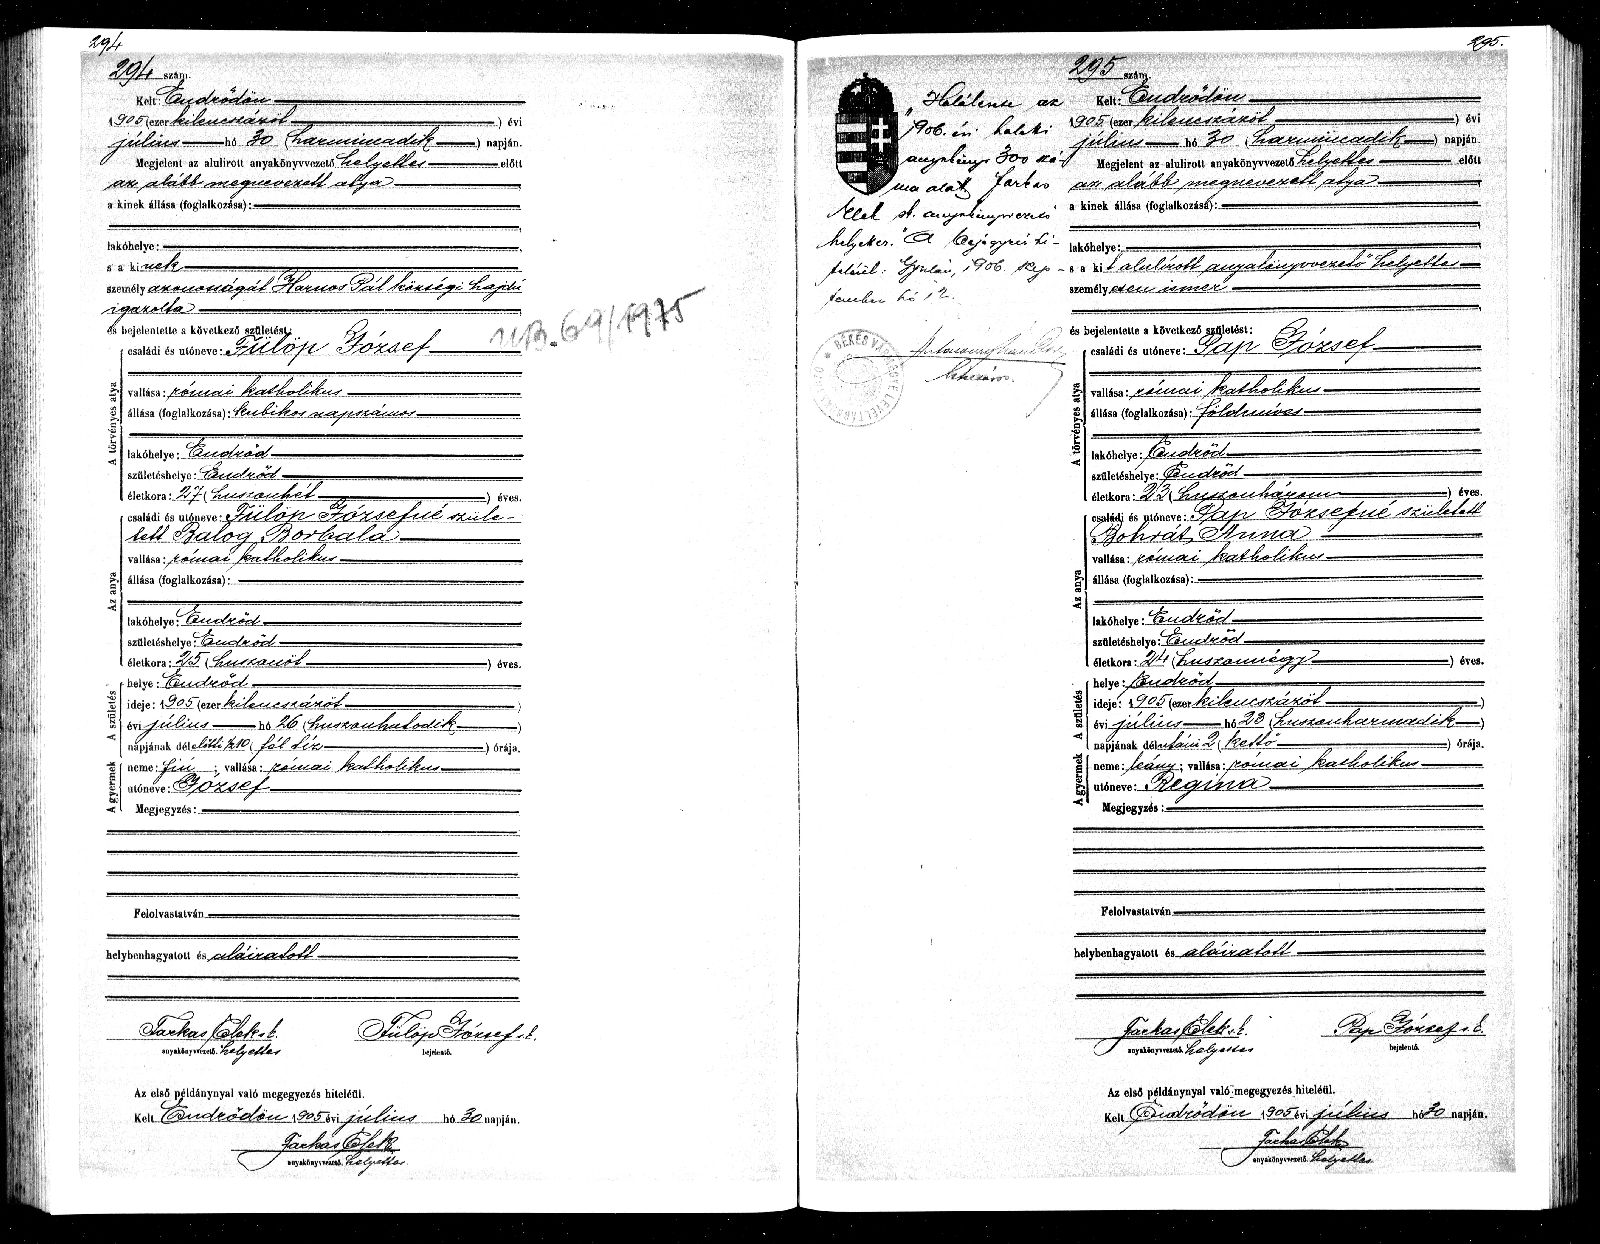 294
294 szám.
Kelt: Endrődön
1905 (ezer kilenczszázöt ) évi
július hó 30 (harminczadik ) napján.
Megjelent az alulirott anyakönyvvezető helyettes előtt
az alább megnevezett atya
a kinek állása (foglalkozása):
lakóhelye:
s a kinek
személyazonosságát Harnos Pál községi hajdu
igazolta
és bejelentette a következő születést:
A törvényes atya
családi és utóneve: Fülöp József
vallása: római katholikus
állása (foglalkozása): kubikos napszámos
lakóhelye: Endrőd
születéshelye: Endrőd
életkora: 27 (huszonhét ) éves.
Az anya
családi és utóneve: Fülöp Józsefné szüle-
tett Balog Borbála
vallása: római katholikus
állása (foglalkozása):
lakóhelye: Endrőd
születéshelye: Endrőd
életkora: 25 (huszonöt ) éves.
A születés
helye: Endrőd
ideje: 1905 (ezer kilenczszázöt )
évi július hó 26 (huszonhatodik )
napjának délelőtti ½10 (fél tíz ) órája.
A gyermek
neme: fiú ; vallása: római katholikus
utóneve: József
Megjegyzés:
Felolvastatván
helybenhagyatott és aláiratott
Farkas Elek s.k. Fülöp József s.k.
anyakönyvvezető. helyettes bejelentő.
Az első példánynyal való megegyezés hiteléül.
Kelt Endrődön 1905 évi július hó 30 napján.
Farkas Elek
anyakönyvvezető. helyettes
69/1975
295.
295 szám.
"Halálesete az
1906. évi halotti
anyakönyv 300 szá-
ma alatt Farkas
Elek sk. anyakönyvvezető
helyettes." A bejegyzés hi-
teléül: Gyulán, 1906. szep-
tember hó 12.
BÉKÉS VÁRMEGYE
Kelt: Endrődön
1905 (ezer kilenczszázöt ) évi
július hó 30 (harminczadik ) napján.
Megjelent az alulirott anyakönyvvezető helyettes előtt
az alább megnevezett atya
a kinek állása (foglalkozása):
lakóhelye:
s a kit alulírott anyakönyvvezető helyettes
személyesen ismer
és bejelentette a következő születést:
A törvényes atya
családi és utóneve: Pap József
vallása: római katholikus
állása (foglalkozása): földmíves
lakóhelye: Endrőd
születéshelye: Endrőd
életkora: 23 (huszonhárom ) éves.
Az anya
családi és utóneve: Pap Józsefné született
Bohrát Anna
vallása: római katholikus
állása (foglalkozása):
lakóhelye: Endrőd
születéshelye: Endrőd
életkora: 24 (huszonnégy ) éves.
A születés
helye: Endrőd
ideje: 1905 (ezer kilenczszázöt )
évi július hó 23 (huszonharmadik )
napjának délutáni 2 (kettő ) órája.
A gyermek
neme: leány ; vallása: római katholikus
utóneve: Regina
Megjegyzés:
Felolvastatván
helybenhagyatott és aláiratott
Farkas Elek s.k. Pap József s.k.
anyakönyvvezető. helyettes bejelentő.
Az első példánynyal való megegyezés hiteléül.
Kelt Endrődön 1905 évi július hó 30 napján.
Farkas Elek
anyakönyvvezető. helyettes